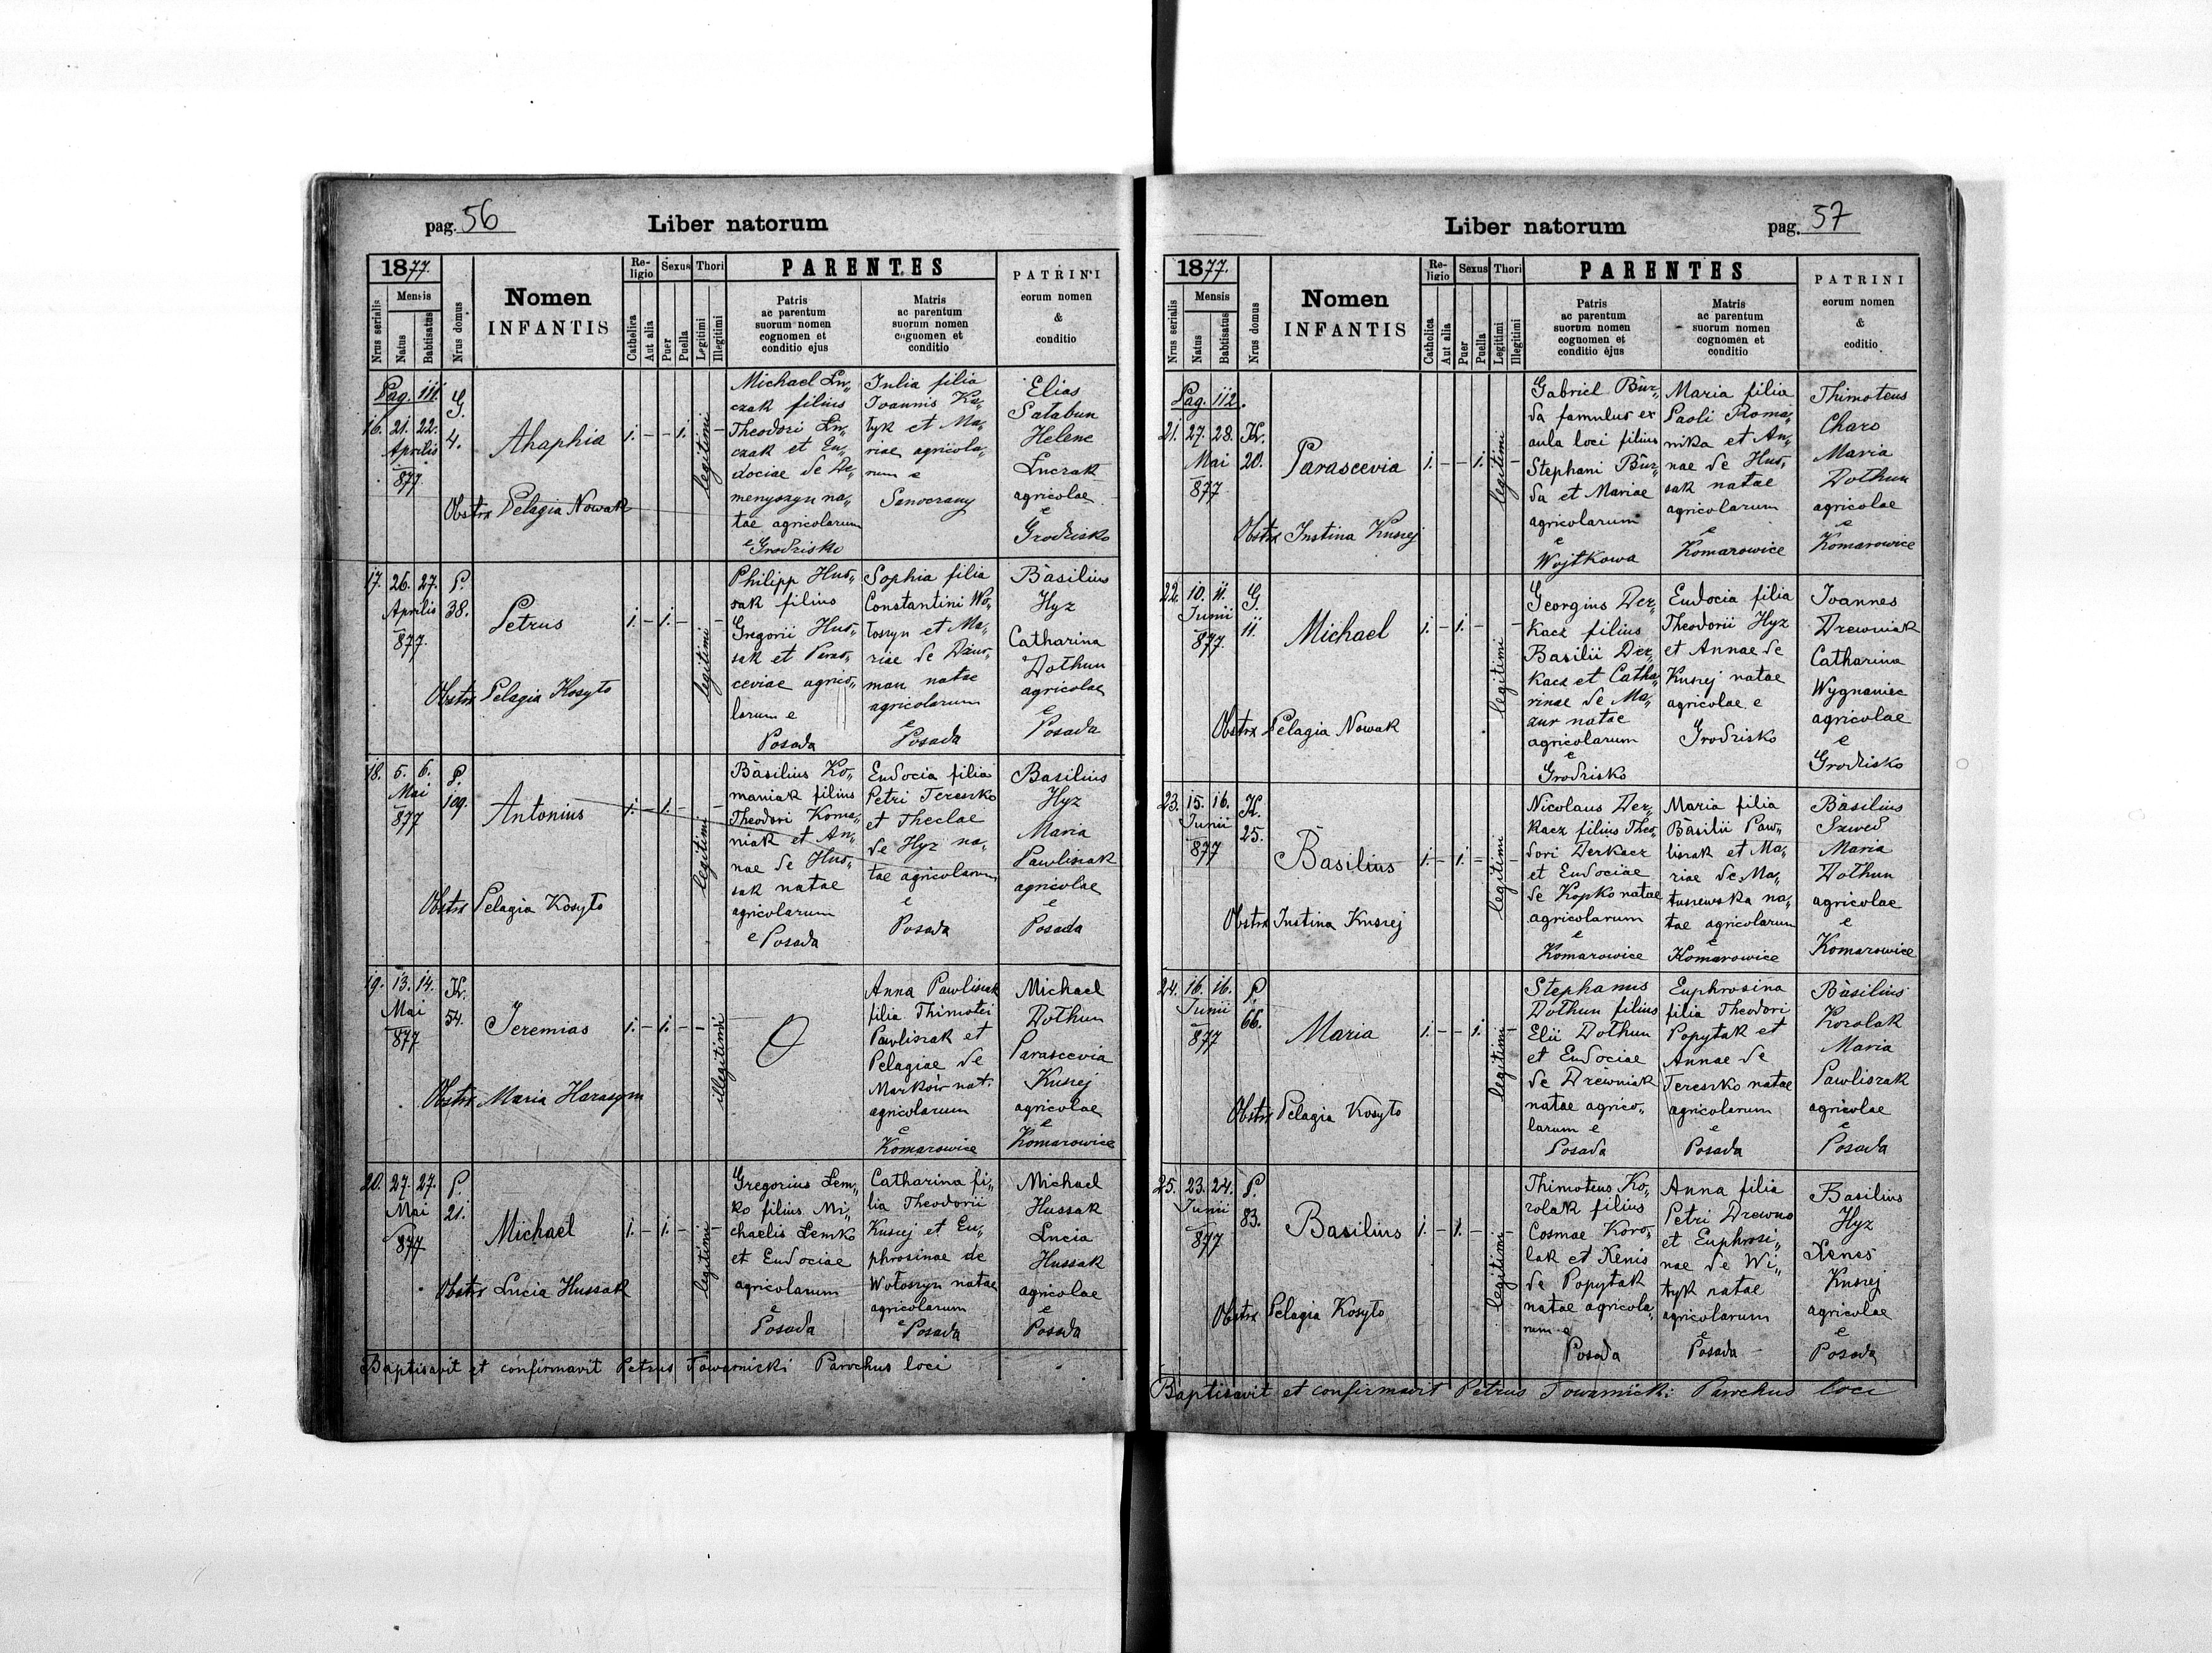 pag. 56
Liber natorum
1877.
Nrus serialis
Mensis
Natus
Babtisatus
Nrus domus
Nomen
INFANTIS
Re-
ligio
Catholica
Aut alia
Sexus
Puer
Puella
Thori
Legitimi
Illegitimi
PARENTES
Patris
ac parentum
suorum nomen
cognomen et
conditio ejus
Matris
ac parentum
suorum nomen
cognomen et
conditio
PATRINI
eorum nomen
&
conditio
Pag. 111.
16. 21. 22.
Aprilis
877.
G.
4.
Ahaphia
Obstrx Pelagia Nowak
1. – – 1.
legitimi
–
Michael Łu„
czak filius
Theodori Łu„
czak et Eu„
dociae de De„
menyozyn na„
tae agricolarum
e Grodzisko
Julia filia
Joannis Ka„
tyk et Ma„
riae agricola„
rum e
Senoczany
Elias
Satabun
Helene
Łuczak
agricolae
e
Grodzisko
17. 26. 27.
Aprilis
877.
P.
38.
Petrus
Obstrx Pelagia Kosyło
1. – 1. –
legitimi
–
Philipp Hus„
sak filius
Gregorii Hus„
sak et Paras„
ceviae agrico„
larum e
Posada
Sophia filia
Constantini Wo„
łoszyn et Ma„
riae de Dziur„
man natae
agricolarum
e
Posada
Basilius
Hyz
Catharina
Dołhun
agricolae
e
Posada
18. 5. 6.
Mai
877
P.
109.
Antonius
Obstrx Pelagia Kosyło
1. – 1. –
legitimi
Basilius Ko„
maniak filius
Theodori Koma„
niak et An„
nae de Hus„
sak natae
agricolarum
e Posada
Eudocia filia
Petri Tereszko
et Theclae
de Hyz na„
tae agricolarum
e
Posada
Basilius
Hyz
Maria
Pawliszak
agricolae
e
Posada
19. 13. 14.
Mai
877
K.
54.
Jeremias
Obstrx Maria Harasym
1. – 1. – –
illegitimi
O
Anna Pawliszak
filia Thimotei
Pawliszak et
Pelagiae de
Markow nat.
agricolarum
e
Komarowice
Michael
Dołhun
Parascevia
Kuszej
agricolae
e
Komarowice
20. 27. 27.
Mai
877
P.
21.
Michael
Obstrx Lucia Hussak
1. – 1. –
legitimi
–
Gregorius Łem„
ko filius Mi„
chaelis Łemko
et Eudociae
agricolarum
e
Posada
Catharina fi„
lia Theodorii
Kuszej et Eu„
phrosinae de
Wołoszyn natae
agricolarum
e Posada
Michael
Hussak
Lucia
Hussak
agricolae
e
Posada
Baptisavit et confirmavit Petrus Towarnicki Parochus loci
Liber natorum
pag. 57
1877.
Nrus serialis
Mensis
Natus
Babtisatus
Nrus domus
Nomen
INFANTIS
Re-
ligio
Catholica
Aut alia
Sexus
Puer
Puella
Thori
Legitimi
Illegitimi
PARENTES
Patris
ac parentum
suorum nomen
cognomen et
conditio ejus
Matris
ac parentum
suorum nomen
cognomen et
conditio
PATRINI
eorum nomen
&
coditio
Pag. 112.
21. 27. 28.
Mai
877
K.
20.
Parascevia
Obstrx Justina Kuszej
1. – – 1.
legitimi
–
Gabriel Bur„
da famulus ex
aula loci filius
Stephani Bur„
da et Mariae
agricolarum
e
Wojtkowa
Maria filia
Paoli Roma„
nika et An„
nae de Hus„
sak natae
agricolarum
e
Komarowice
Thimoteus
Charo
Maria
Dołhun
agricolae
e
Komarowice
22. 10. 11.
Junii
877
G.
11.
Michael
Obstrx Pelagia Nowak
1. – 1. –
legitimi
–
Georgius Der„
kacz filius
Basilii Der„
kacz et Catha„
rinae de Ma„
zur natae
agricolarum
e
Grodzisko
Eudocia filia
Theodorii Hyz
et Annae de
Kuszej natae
agricolae e
Grodzisko
Joannes
Drewniak
Catharina
Wygnaniec
agricolae
e
Grodzisko
23. 15. 16.
Junii
877
K.
25.
Basilius
Obstrx Justina Kuszej
1. – 1. –
legitimi
–
Nicolaus Der„
kacz filius Theo„
dori Derkacz
et Eudociae
de Kopko natae
agricolarum
e
Komarowice
Maria filia
Basilii Paw„
liszak et Ma„
riae de Ma„
tuszewska na„
tae agricolarum
e
Komarowice
Basilius
Szwed
Maria
Dołhun
agricolae
e
Komarowice
24. 16. 16.
Junii
877
P.
66.
Maria
Obstrx Pelagia Kosyło
1. – – 1.
legitimi
–
Stephanus
Dołhun filius
Elii Dołhun
et Eudociae
de Drewniak
natae agrico„
larum e
Posada
Euphrosina
filia Theodori
Popytak et
Annae de
Tereszko natae
agricolarum
e
Posada
Basilius
Korolak
Maria
Pawliszak
agricolae
e
Posada
25. 23. 24.
Junii
877
P.
83.
Basilius
Obstrx Pelagia Kosyło
1. – 1. –
legitimi
–
Thimoteus Ko„
rolak filius
Cosmae Koro„
lak et Xenis
de Popytak
natae agricola„
rum e
Posada
Anna filia
Petri Drewno
et Euphrosi„
nae de Wi„
tyk natae
agricolarum
e
Posada
Basilius
Hyz
Xenes
Kuszej
agricolae
e
Posada
Baptisavit et confirmavit Petrus Towarnicki Parochus loci